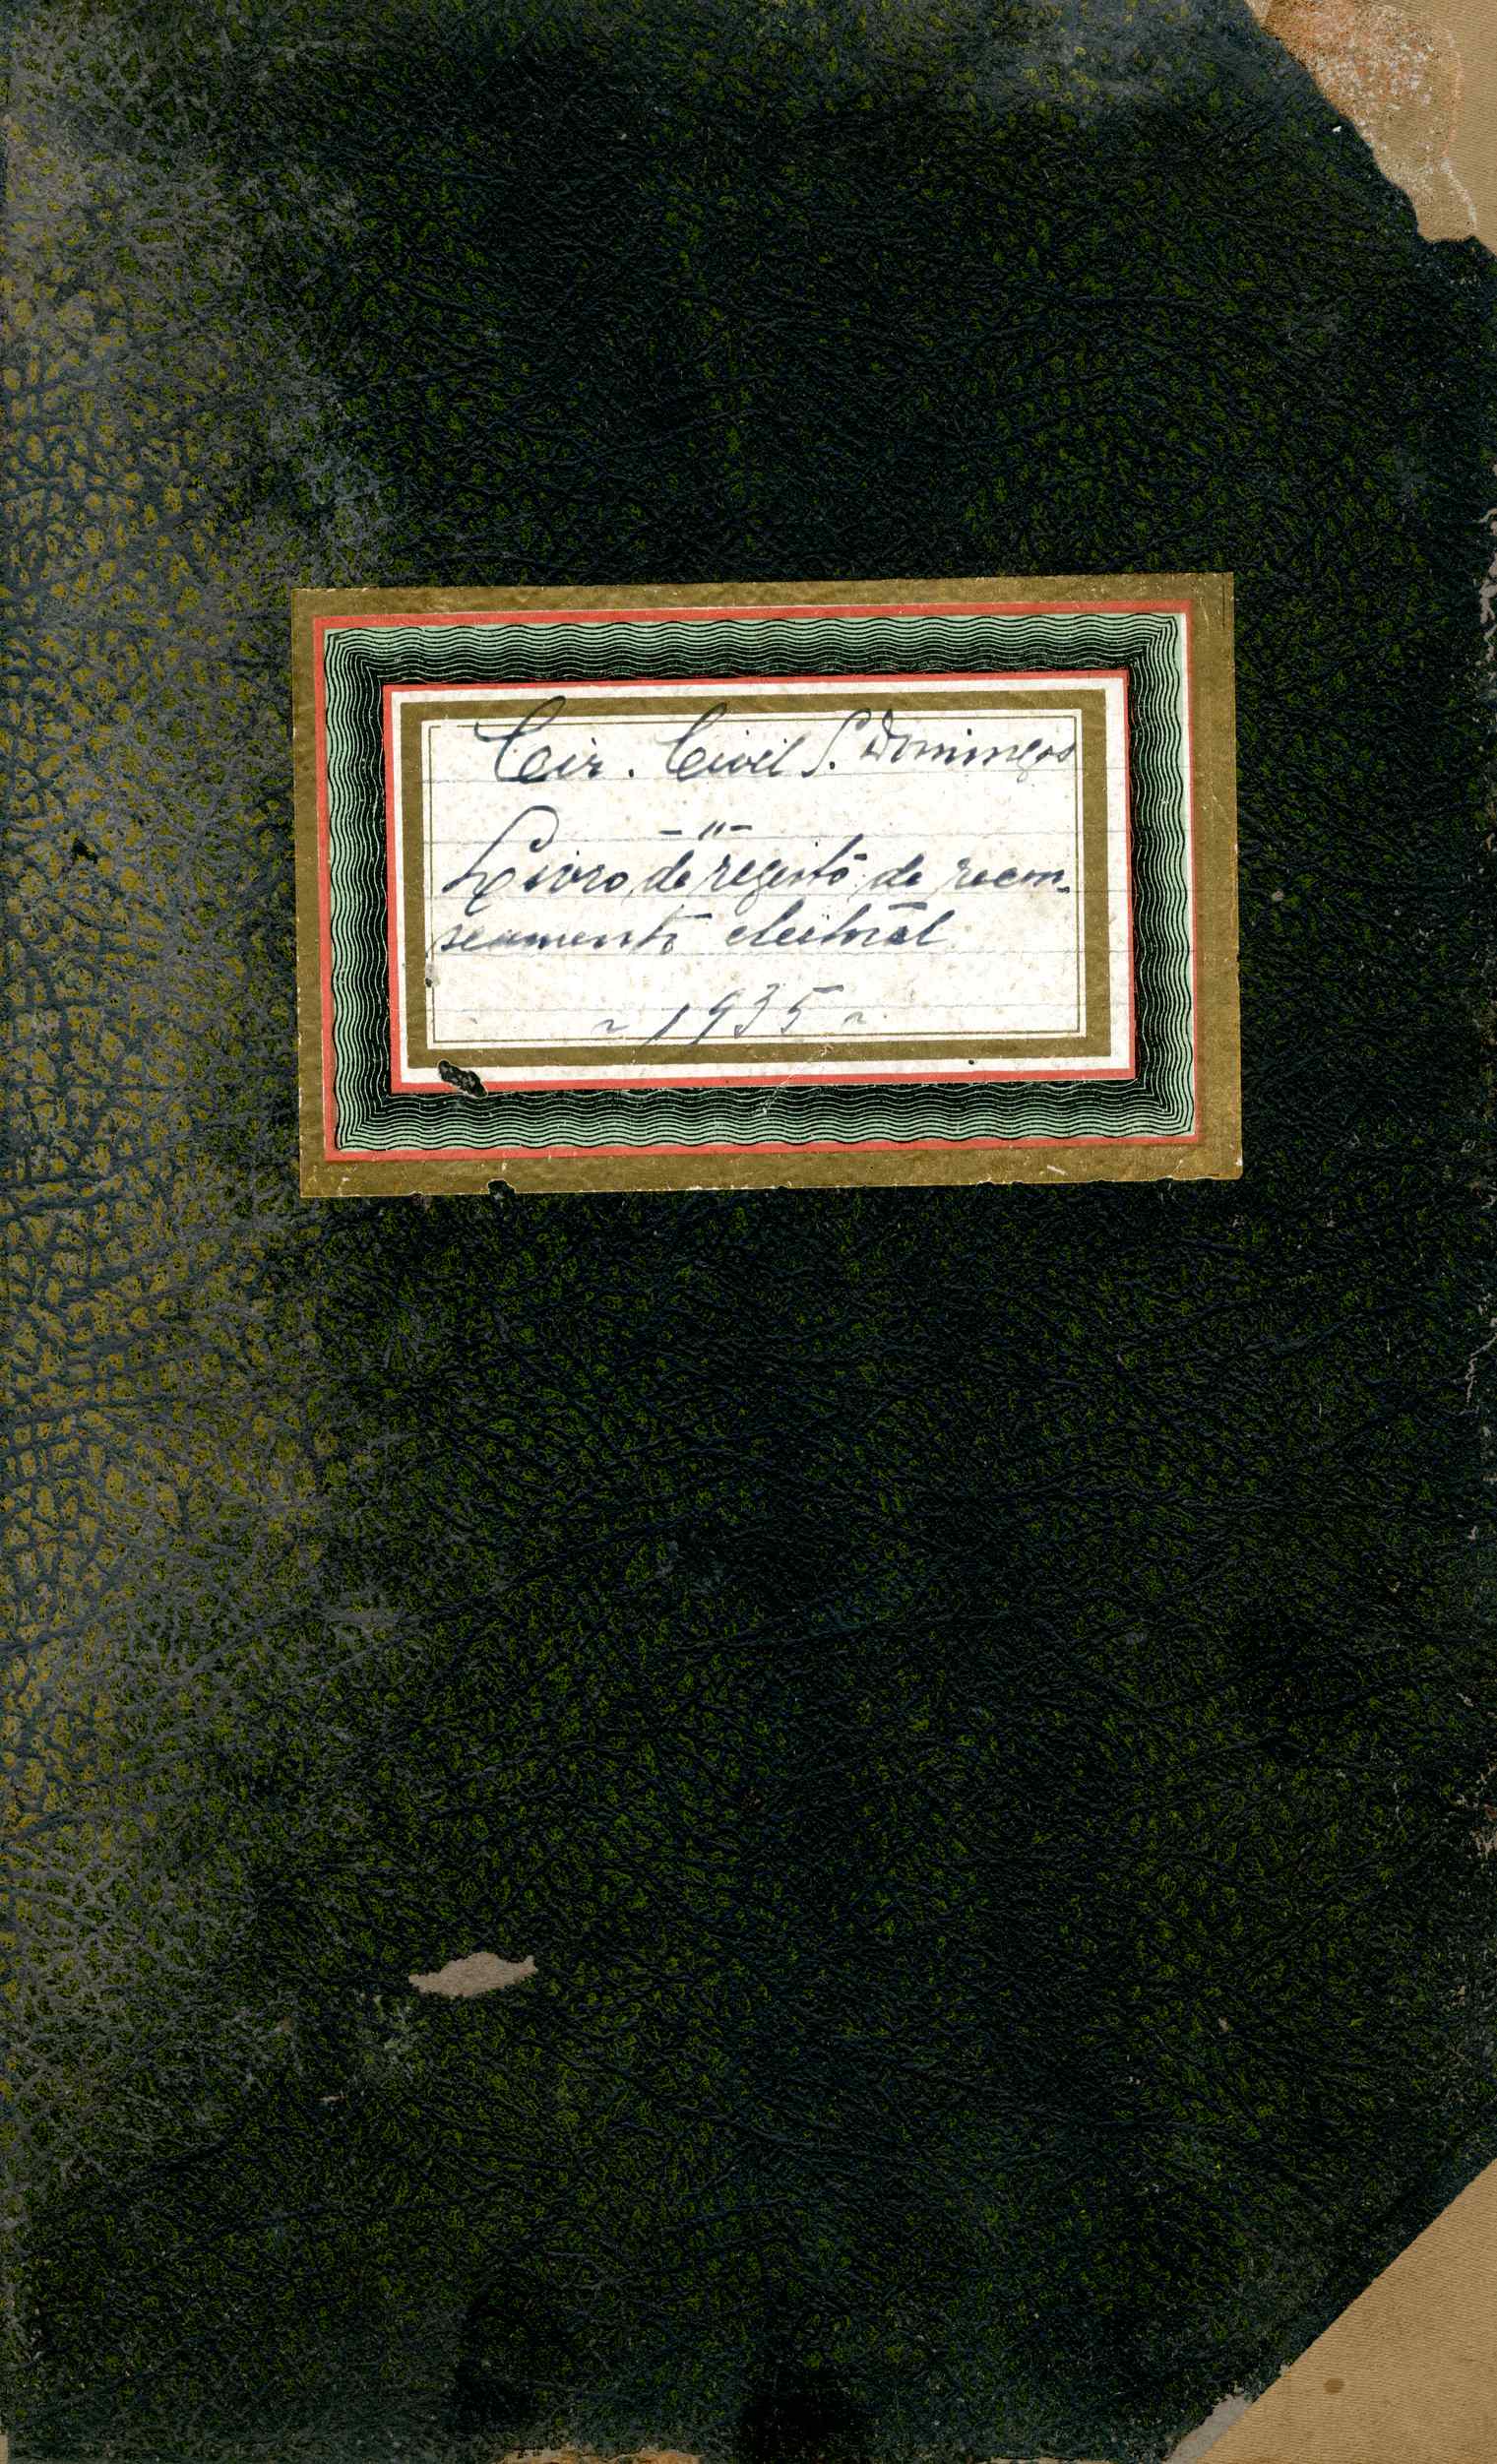 Cir. Civil S. Domingos
-"-
Livro de registo de recen-
seamento eleitoral
~ 1935 ~